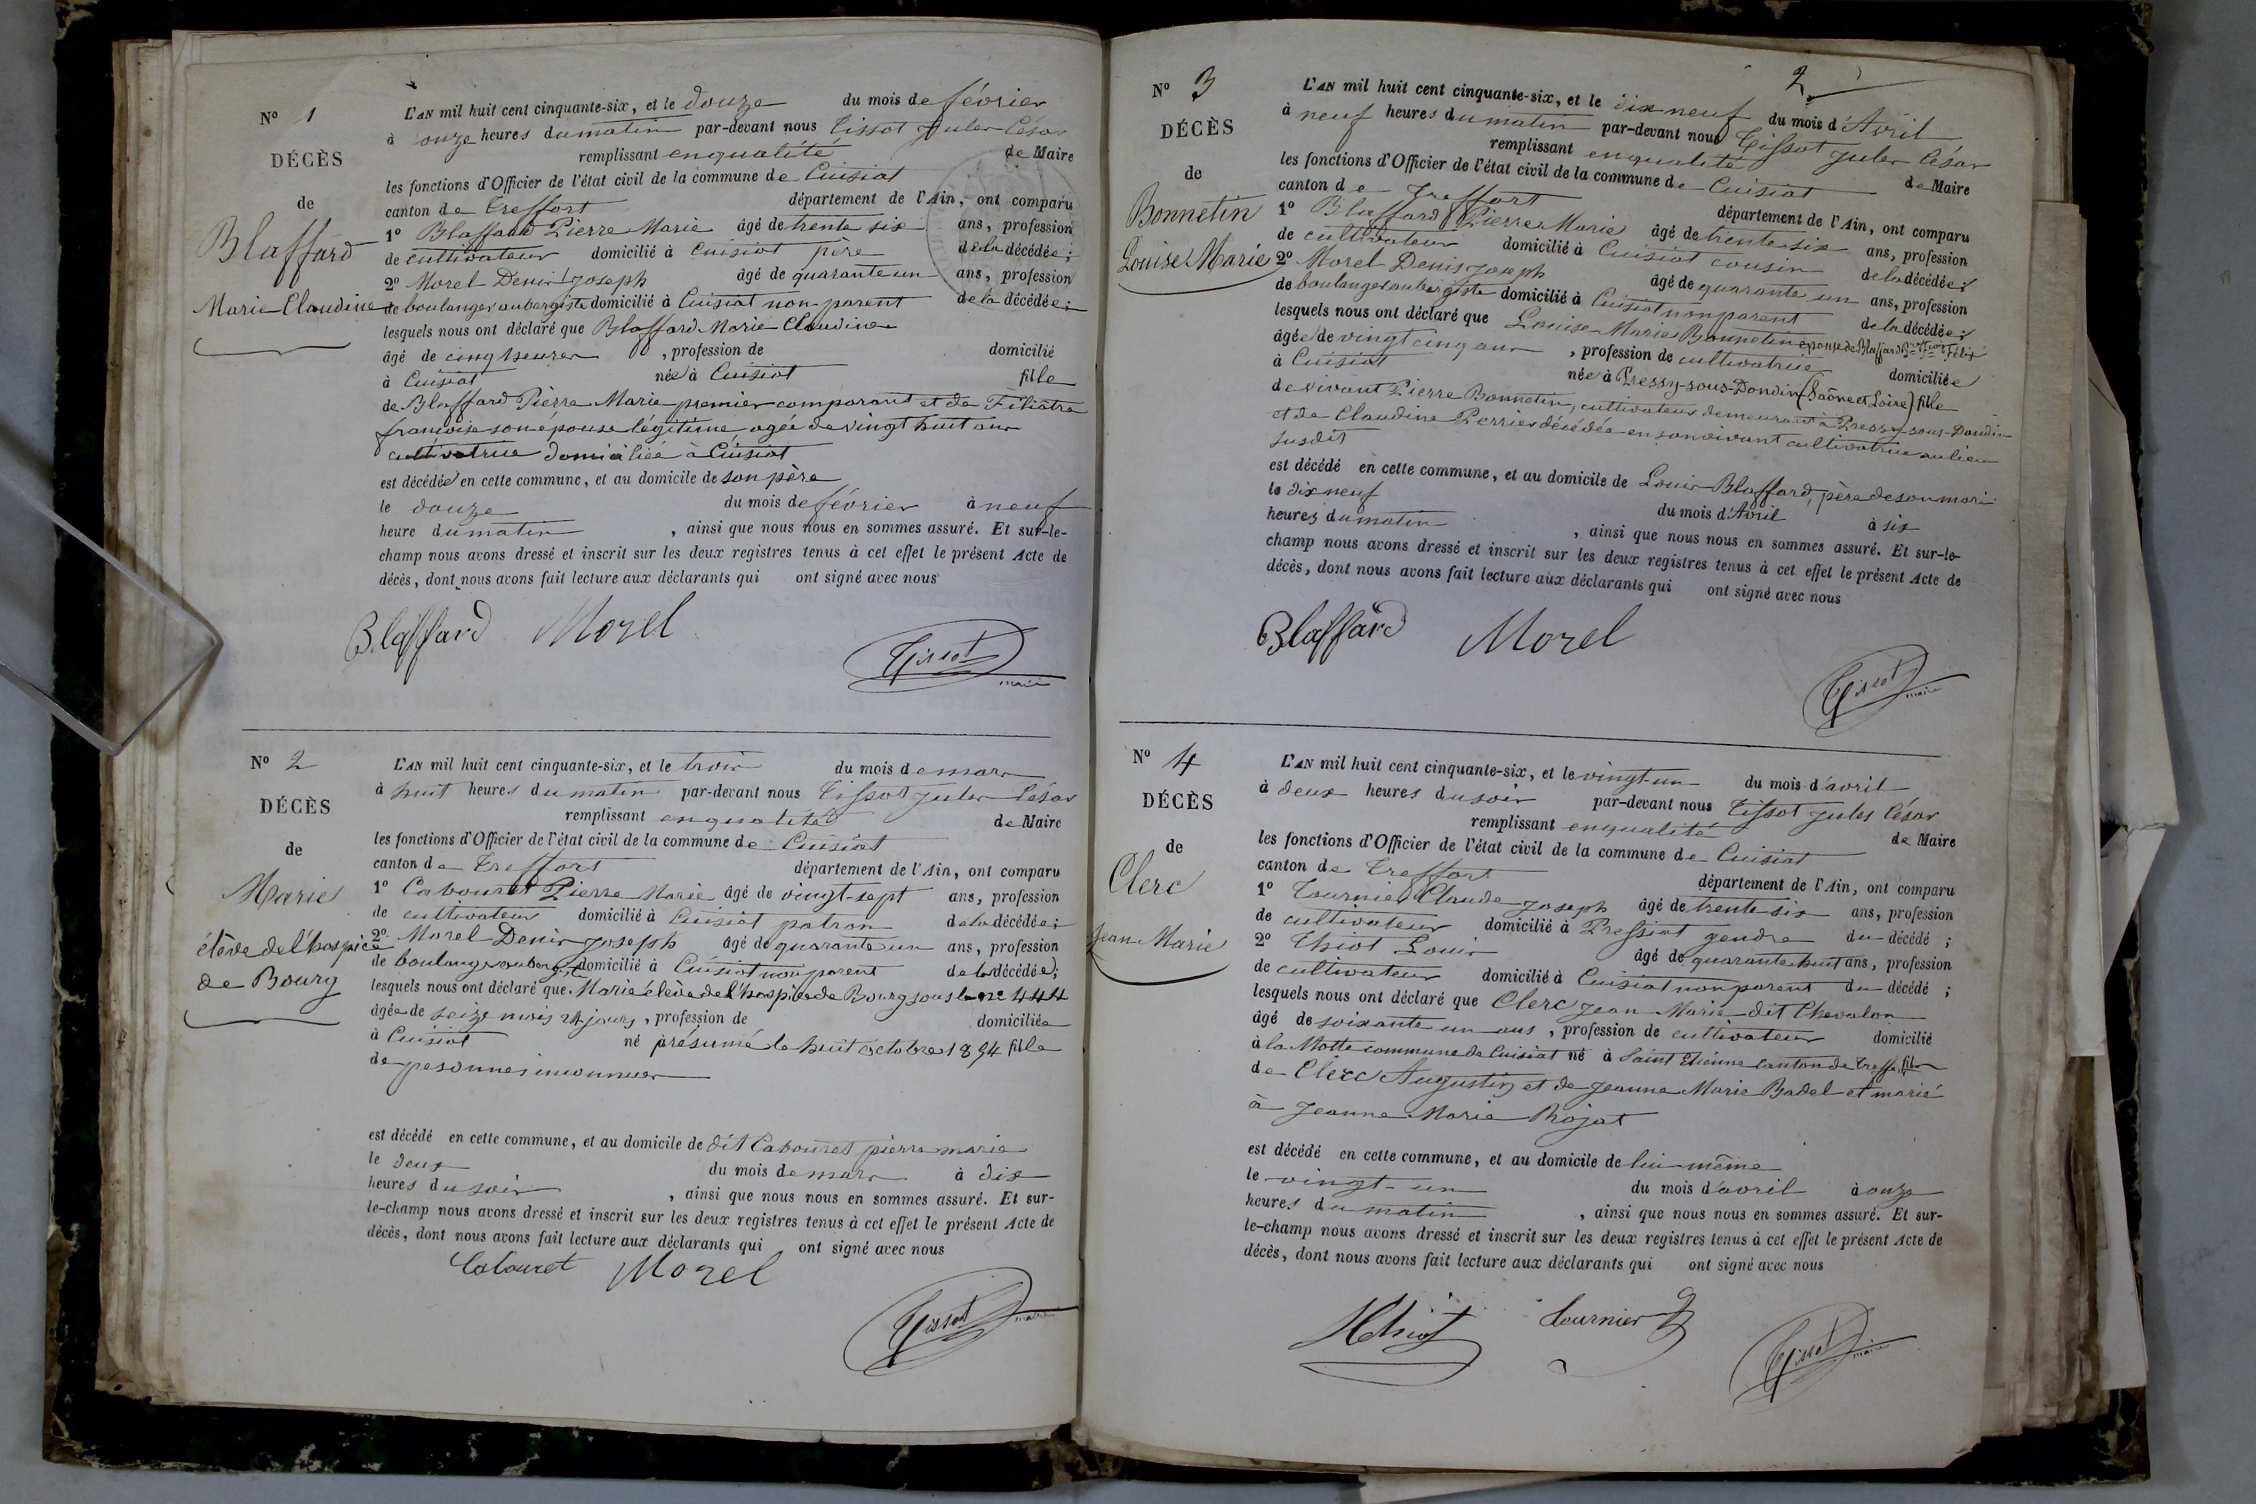 N° 1
DÉCÈS
de
Blaffard
Marie Claudine
L'AN mil huit cent cinquante-six, et le douze du mois de février
à onze heures du matin par-devant nous Tissot Jules César
remplissant en qualité de Maire
les fonctions d'Officier de l'état civil de la commune de Cuisiat
canton de Treffort département de l'Ain, ont comparu
1° Blaffard Pierre Marie âgé de trente six ans, profession
de cultivateur domicilié à Cuisiat père de la décédée;
2° Morel Denis Joseph âgé de quarante un ans, profession
de boulanger aubergiste domicilié à Cuisiat non parent de la décédée;
lesquels nous ont déclaré que Blaffard Marie Claudine
âgé de cinq heures , profession de domicilié
à Cuisiat née à Cuisiat fille
de Blaffard Pierre Marie premier comparant et de Filiatre
francoise son épouse légitime agée de vingt huit ans
cultivatrice domiciliée à Cuisiat
est décédée en cette commune, et au domicile de son père
le douze du mois de février à neuf
heure du matin , ainsi que nous nous en sommes assuré. Et sur-le-
champ nous avons dressé et inscrit sur les deux registres tenus à cet effet le présent Acte de
décès, dont nous avons fait lecture aux déclarants qui ont signé avec nous
Blaffard Morel
Tissot
maire
N° 2
DÉCÈS
de
Marie
élève de l'hospice
de Bourg
L'AN mil huit cent cinquante-six, et le trois du mois de mars
à huit heures du matin par-devant nous Tissot Jules César
remplissant en qualité de Maire
les fonctions d'Officier de l'état civil de la commune de Cuisiat
canton de Treffort département de l'Ain, ont comparu
1° Cabouret Pierre Marie âgé de vingt-sept ans, profession
de cultivateur domicilié à Cuisiat patron de la décédée;
2° Morel Denis Joseph âgé de quarante un ans, profession
de boulanger aubergiste domicilié à Cuisiat non parent de la décédée;
lesquels nous ont déclaré que Marie élève de l'hospice de Bourg sous le n° 444
âgée de seize mois 24 jours, profession de domiciliée
à Cuisiat né présumé le huit octobre 1854 fille
de pesonnes inconnues
est décédé en cette commune, et au domicile de dit Cabouret pierre marie
le deux du mois de mars à dix
heures du soir , ainsi que nous nous en sommes assuré. Et sur-
le-champ nous avons dressé et inscrit sur les deux registres tenus à cet effet le présent Acte de
décès, dont nous avons fait lecture aux déclarants qui ont signé avec nous
Cabouret Morel
Tissot
maire
2
N° 3
DÉCÈS
de
Bonnetin
Louise Marie
L'AN mil huit cent cinquante-six, et le dix neuf du mois d'Avril
à neuf heures du matin par-devant nous Tissot Jules César
remplissant en qualité de Maire
les fonctions d'Officier de l'état civil de la commune de Cuisiat
canton de Treffort département de l'Ain, ont comparu
1° Blaffard Pierre Marie âgé de trente six ans, profession
de cultivateur domicilié à Cuisiat cousin de la décédée;
2° Morel Denis Joseph âgé de quarante un ans, profession
de boulanger aubergiste domicilié à Cuisiat non parent de la décédée;
lesquels nous ont déclaré que Louise Marie Bonnetin épouse de Blaffard Félix
âgée de vingt cinq ans , profession de cultivatrice domiciliée
à Cuisiat née à Pressy-sous-Dondin (Saône et Loire) fille
de vivant Pierre Bonnetin, cultivateur demeurant à Pressy-sous-Dondin
et de Claudine Perrier décédée en son vivant cultivatrice au lieu
susdit
est décédé en cette commune, et au domicile de Louis Blaffard, père de son mari
le dix neuf du mois d'Avril à six
heures du matin , ainsi que nous nous en sommes assuré. Et sur-le-
champ nous avons dressé et inscrit sur les deux registres tenus à cet effet le présent Acte de
décès, dont nous avons fait lecture aux déclarants qui ont signé avec nous
Blaffard Morel
Tissot
maire
N° 4
DÉCÈS
de
Clerc
Jean Marie
L'AN mil huit cent cinquante-six, et le vingt-un du mois d'avril
à deux heures du soir par-devant nous Tissot Jules César
remplissant en qualité de Maire
les fonctions d'Officier de l'état civil de la commune de Cuisiat
canton de Treffort département de l'Ain, ont comparu
1° Tournier Claude Joseph âgé de trente six ans, profession
de cultivateur domicilié à Pressiat gendre du décédé ;
2° Thiot Louis âgé de quarante huit ans, profession
de cultivateur domicilié à Cuisiat non parent du décédé ;
lesquels nous ont déclaré que Clerc Jean Marie dit Chevalon
âgé de soixante un ans , profession de cultivateur domicilié
à la Motte commune de Cuisiat né à Saint Etienne canton de Treffort fils
de Clerc Augustin et de Jeanne Marie Badel et marié
à Jeanne Marie Rojat
est décédé en cette commune, et au domicile de lui-même
le vingt-un du mois d'avril à onze
heures du matin , ainsi que nous nous en sommes assuré. Et sur-
le-champ nous avons dressé et inscrit sur les deux registres tenus à cet effet le présent Acte de
décès, dont nous avons fait lecture aux déclarants qui ont signé avec nous
Thiot Tournier
Tissot
maire